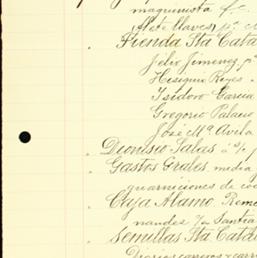 maquinista f.c.
(Siete Llaves) p.
Tienda Sta Cata
Félix Jimenez, p
Hisiquio Reyes
Isidoro Garcia
Gregorio Palacio
José Ma Avila
Dionisio Salas á
Gastos Grales, media
guarniciones de co
Caja Alamo. Reme
nandez
Semillas Sta Catal
Varios carreros y carr